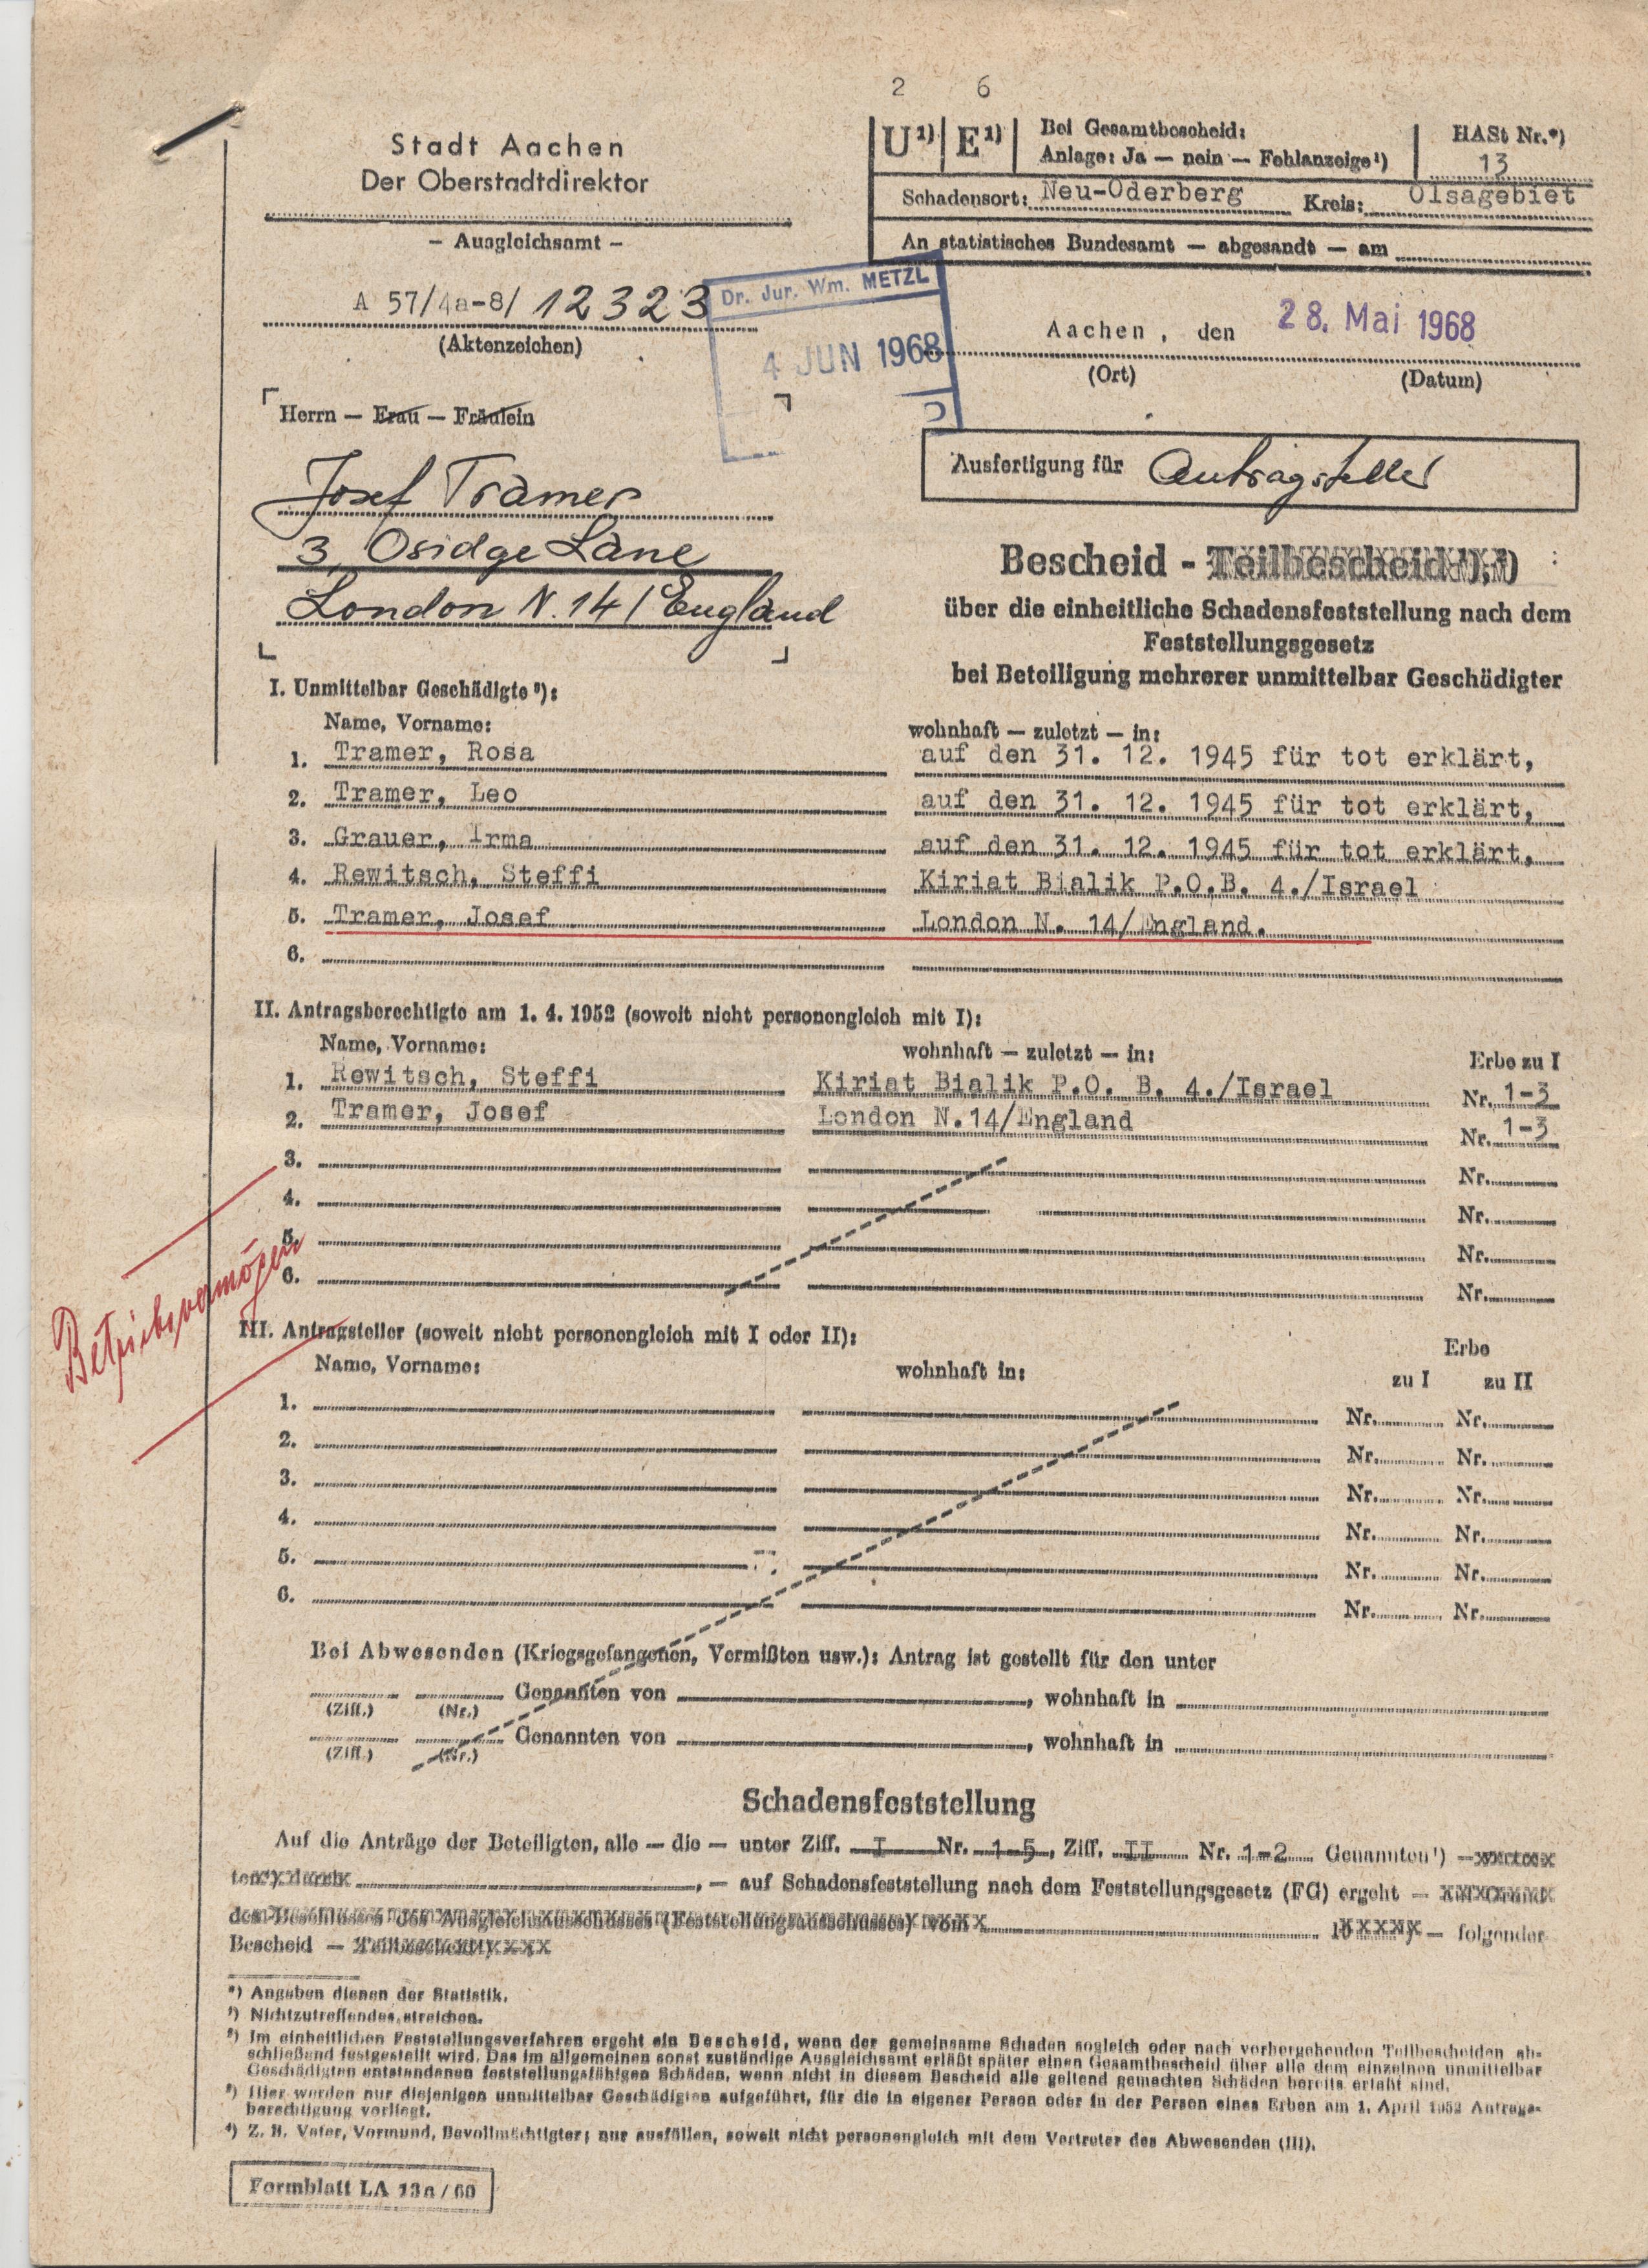 2 6
Stadt Aachen
Der Oberstadtdirektor
– Ausgleichsamt –
U¹) E¹) Bei Gesamtbescheid:
Anlage: Ja — nein — Fehlanzeige¹)
HASt Nr.*)
13
Schadensort: Neu-Oderberg Kreis: Olsagebiet
An statistisches Bundesamt — abgesandt — am
A 57/4a-8/ 12323
(Aktenzeichen)
Dr. Jur. Wm. METZL
4 JUN 1968
Aachen, den 28. Mai 1968
(Ort) (Datum)
Herrn — Frau — Fräulein
Josef Tramer
3, Osidge Lane
London N.14 / England
Ausfertigung für Antragsteller
Bescheid - Teilbescheid¹),²)
über die einheitliche Schadensfeststellung nach dem
Feststellungsgesetz
bei Beteiligung mehrerer unmittelbar Geschädigter
I. Unmittelbar Geschädigte³):
Name, Vorname: wohnhaft — zuletzt — in:
1. Tramer, Rosa auf den 31. 12. 1945 für tot erklärt,
2. Tramer, Leo auf den 31. 12. 1945 für tot erklärt,
3. Grauer, Irma auf den 31. 12. 1945 für tot erklärt,
4. Rewitsch, Steffi Kiriat Bialik P.O.B. 4./Israel
5. Tramer, Josef London N. 14/England.
6.
II. Antragsberechtigte am 1. 4. 1952 (soweit nicht personengleich mit I):
Name, Vorname: wohnhaft — zuletzt — in: Erbe zu I
1. Rewitsch, Steffi Kiriat Bialik P.O. B. 4./Israel Nr. 1-3
2. Tramer, Josef London N.14/England Nr. 1-3
3. Nr.
4. Nr.
5. Nr.
6. Nr.
Betriebsvermögen
III. Antragsteller (soweit nicht personengleich mit I oder II):
Name, Vorname: wohnhaft in: Erbe
zu I zu II
1. Nr. Nr.
2. Nr. Nr.
3. Nr. Nr.
4. Nr. Nr.
5. Nr. Nr.
6. Nr. Nr.
Bei Abwesenden (Kriegsgefangenen, Vermißten usw.): Antrag ist gestellt für den unter
Genannten von , wohnhaft in
(Ziff.) (Nr.)
Genannten von , wohnhaft in
(Ziff.) (Nr.)
Schadensfeststellung
Auf die Anträge der Beteiligten, alle — die — unter Ziff. I Nr. 1-5, Ziff. II Nr. 1-2 Genannten¹) —
, — auf Schadensfeststellung nach dem Feststellungsgesetz (FG) ergeht —
des Beschlusses des Ausgleichsausschusses (Feststellungsausschusses) vom 19 — folgender
Bescheid — Teilbescheid
*) Angaben dienen der Statistik.
¹) Nichtzutreffendes streichen.
²) Im einheitlichen Feststellungsverfahren ergeht ein Bescheid, wenn der gemeinsame Schaden sogleich oder nach vorhergehenden Teilbescheiden ab-
schließend festgestellt wird. Das im allgemeinen sonst zuständige Ausgleichsamt erläßt später einen Gesamtbescheid über alle dem einzelnen unmittelbar
Geschädigten entstandenen feststellungsfähigen Schäden, wenn nicht in diesem Bescheid alle geltend gemachten Schäden bereits erfaßt sind.
³) Hier werden nur diejenigen unmittelbar Geschädigten aufgeführt, für die in eigener Person oder in der Person eines Erben am 1. April 1952 Antrags-
berechtigung vorliegt.
⁴) Z. B. Vater, Vormund, Bevollmächtigter; nur ausfüllen, soweit nicht personengleich mit dem Vertreter des Abwesenden (III).
Formblatt LA 13a/60